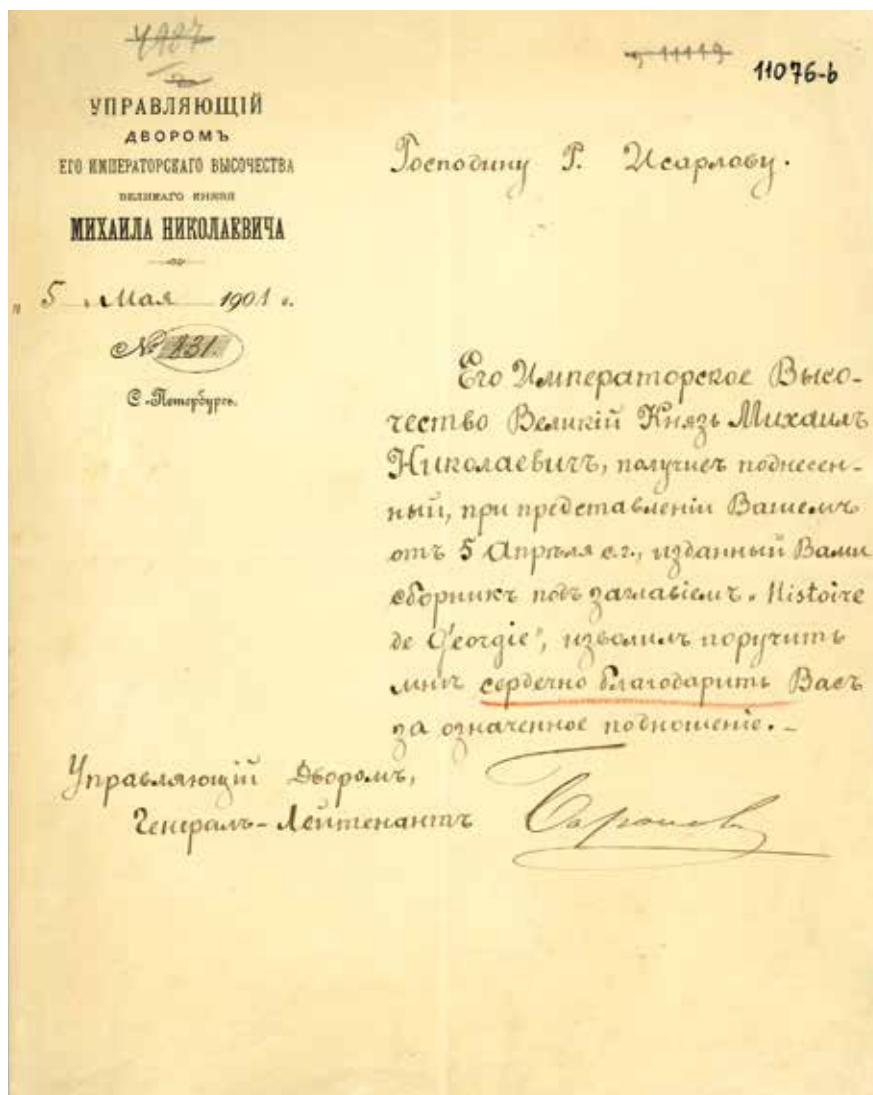 11076-b
УПРАВЛЯЮЩІЙ
ДВОРОМЪ
ЕГО ИМПЕРАТОРСКАГО ВЫСОЧЕСТВА
ВЕЛИКАГО КНЯЗЯ
МИХАИЛА НИКОЛАЕВИЧА
„ 5 „ Мая 1901 г.
№ 131
С.-Петербургъ.
Господину Г. Исарлову.
Его Императорское Высо-
чество Великій Князь Михаилъ
Николаевичъ, получивъ поднесен-
ный, при представленіи Вашемъ
отъ 5 Апрѣля с.г., изданный Вами
сборникъ подъ заглавіемъ „Histoire
de Géorgie", изволилъ поручить
мнѣ сердечно благодарить Васъ
за означенное подношеніе. –
Управляющій Дворомъ,
Генералъ-Лейтенантъ